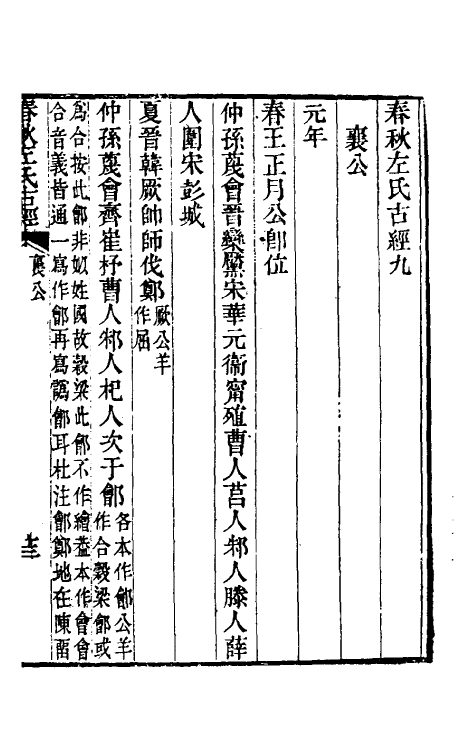 春秋左氏古經九
襄公
元年
春王正月公卽位
仲孫蔑會晉欒黶宋華元衞甯殖曹人莒人邾人滕人薛
人圍宋彭城
夏晉韓厥帥師伐鄭厥公羊
作屈
仲孫蔑會齊崔杼曹人邾人杞人次于鄫各本作鄫公羊
作合穀梁鄫或
爲合按此鄫非姒姓國故穀梁此鄫不作繒葢本作會會
合音義皆通一寫作鄫再寫譌鄫耳杜注鄫鄭地在陳畱
春秋左氏古經
襄公